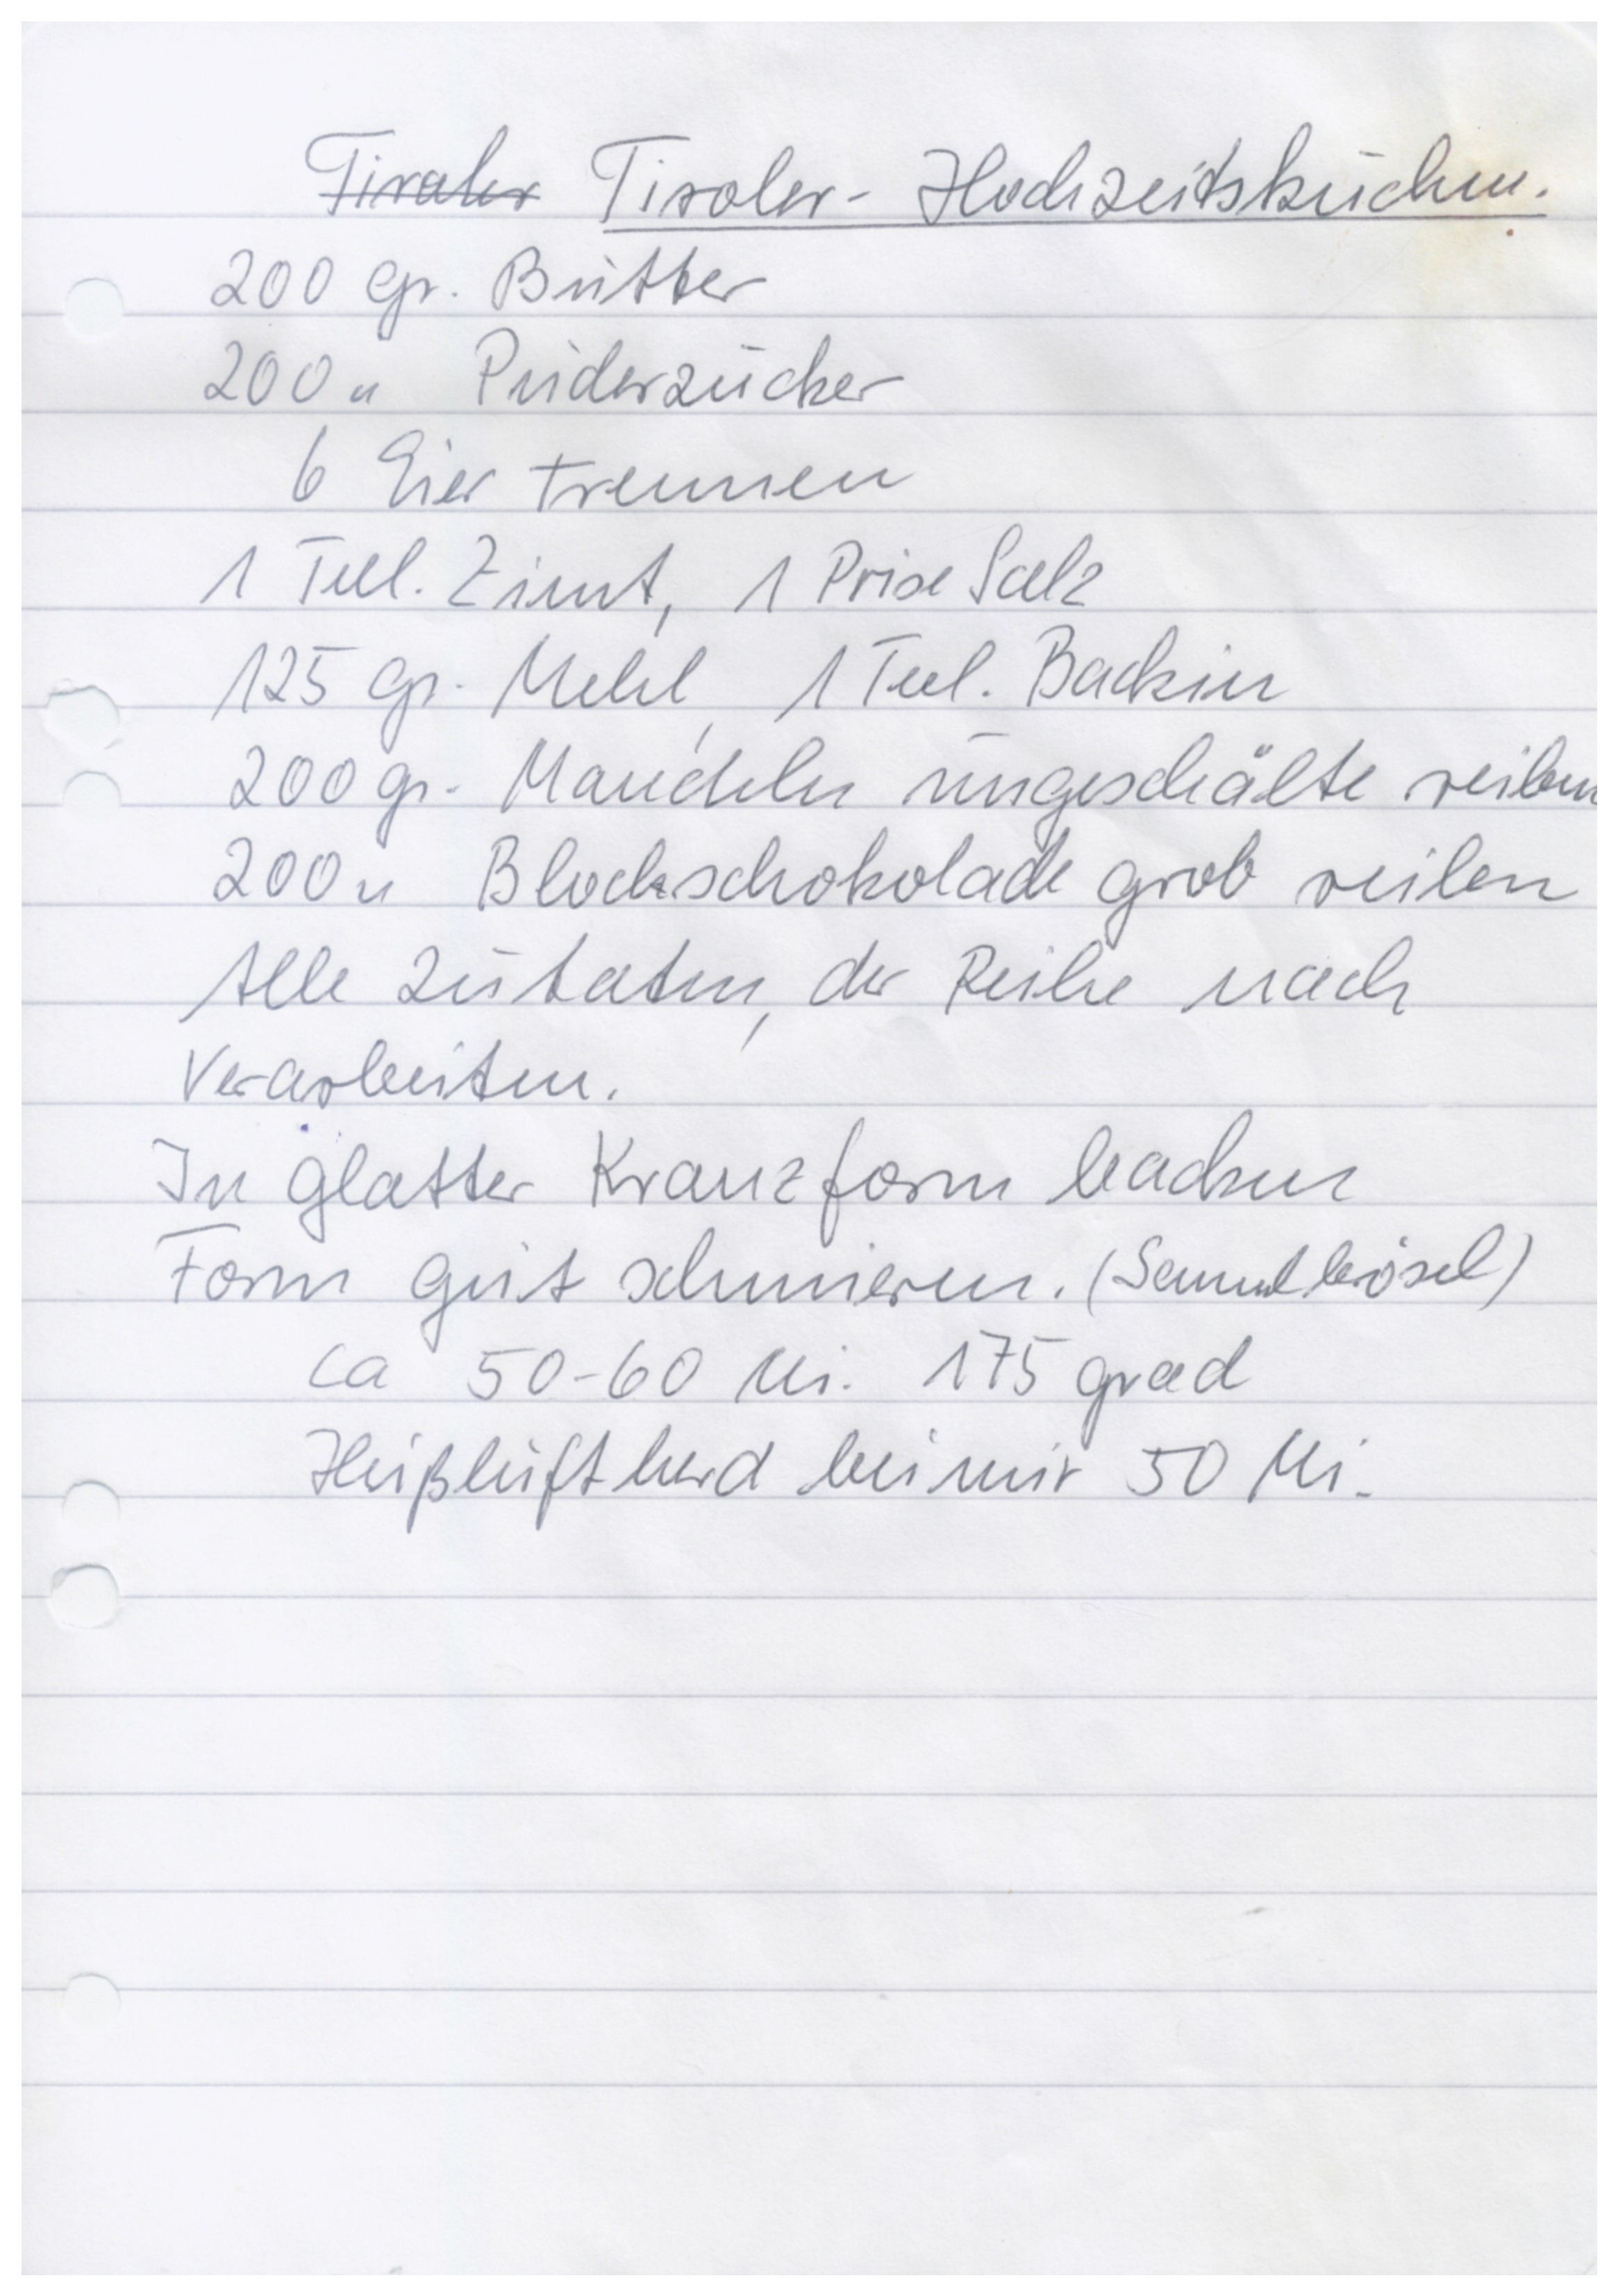 Tiroler Tiroler-Hochzeitskuchen.
200 gr. Butter
200 " Puderzucker
6 Eier trennen
1 Teel. Zimt, 1 Prise Salz
125 gr. Mehl, 1 Teel. Backin
200 gr. Mandeln ungeschälte reiben
200 " Blockschokolade grob reiben
Alle Zutaten, der Reihe nach
Verarbeiten.
In glatter Kranzform backen
Form gut schmieren. (Semmelbrösel)
ca 50-60 Mi. 175 grad
Heißluftherd bei mir 50 Mi.